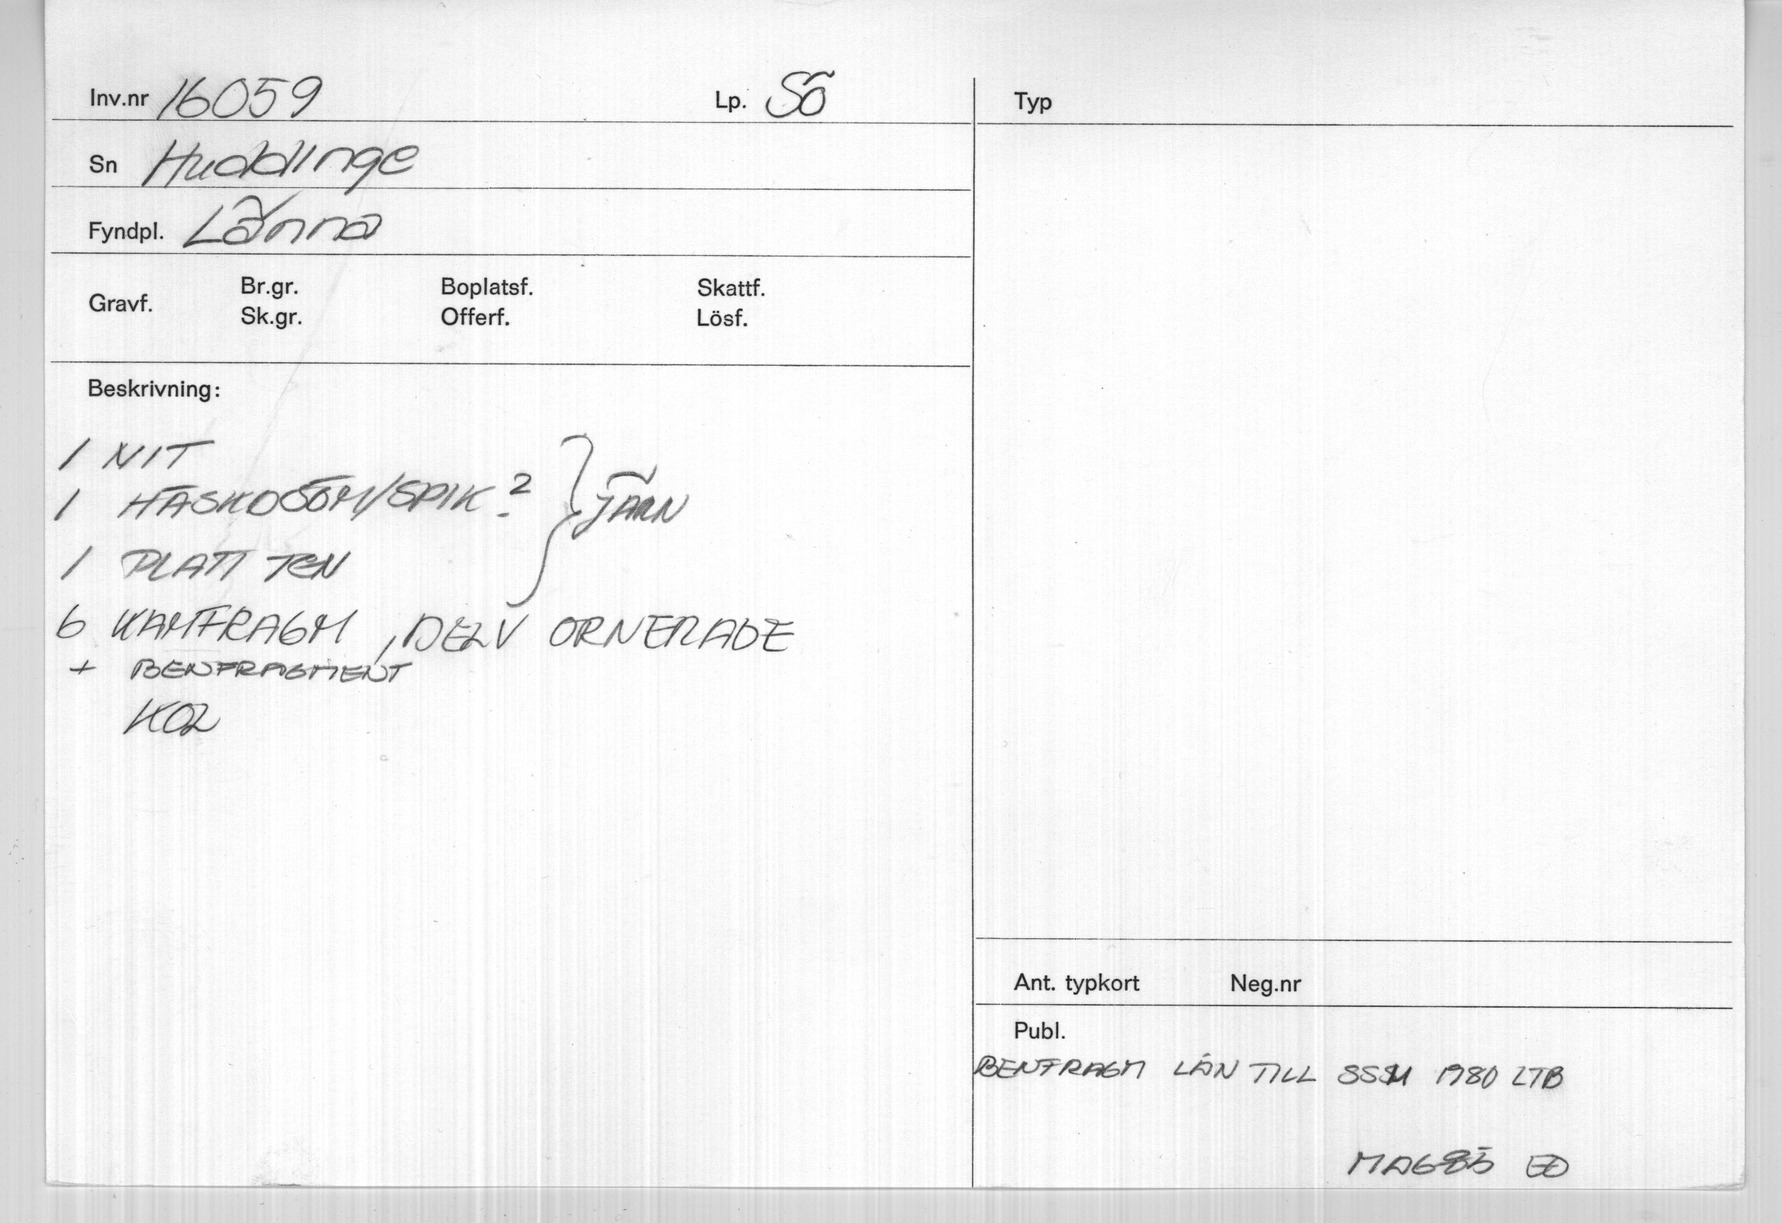 Inv.nr 16059 Lp. Sö
Sn Huddinge
Fyndpl. Länna
Gravf. Br.gr. Boplatsf. Skattf.
Sk.gr. Offerf. Lösf.
Beskrivning:
1 NIT
1 HÄSKOSÖM/SPIK?
} JÄRN
1 PLATT TEN
6 KAMFRAGM, DELV ORNERADE
+ BENFRAGMENT
KOL
Typ
Ant. typkort Neg.nr
Publ.
BENFRAGM LÅN TILL SSM 1980 LTB
MAG85